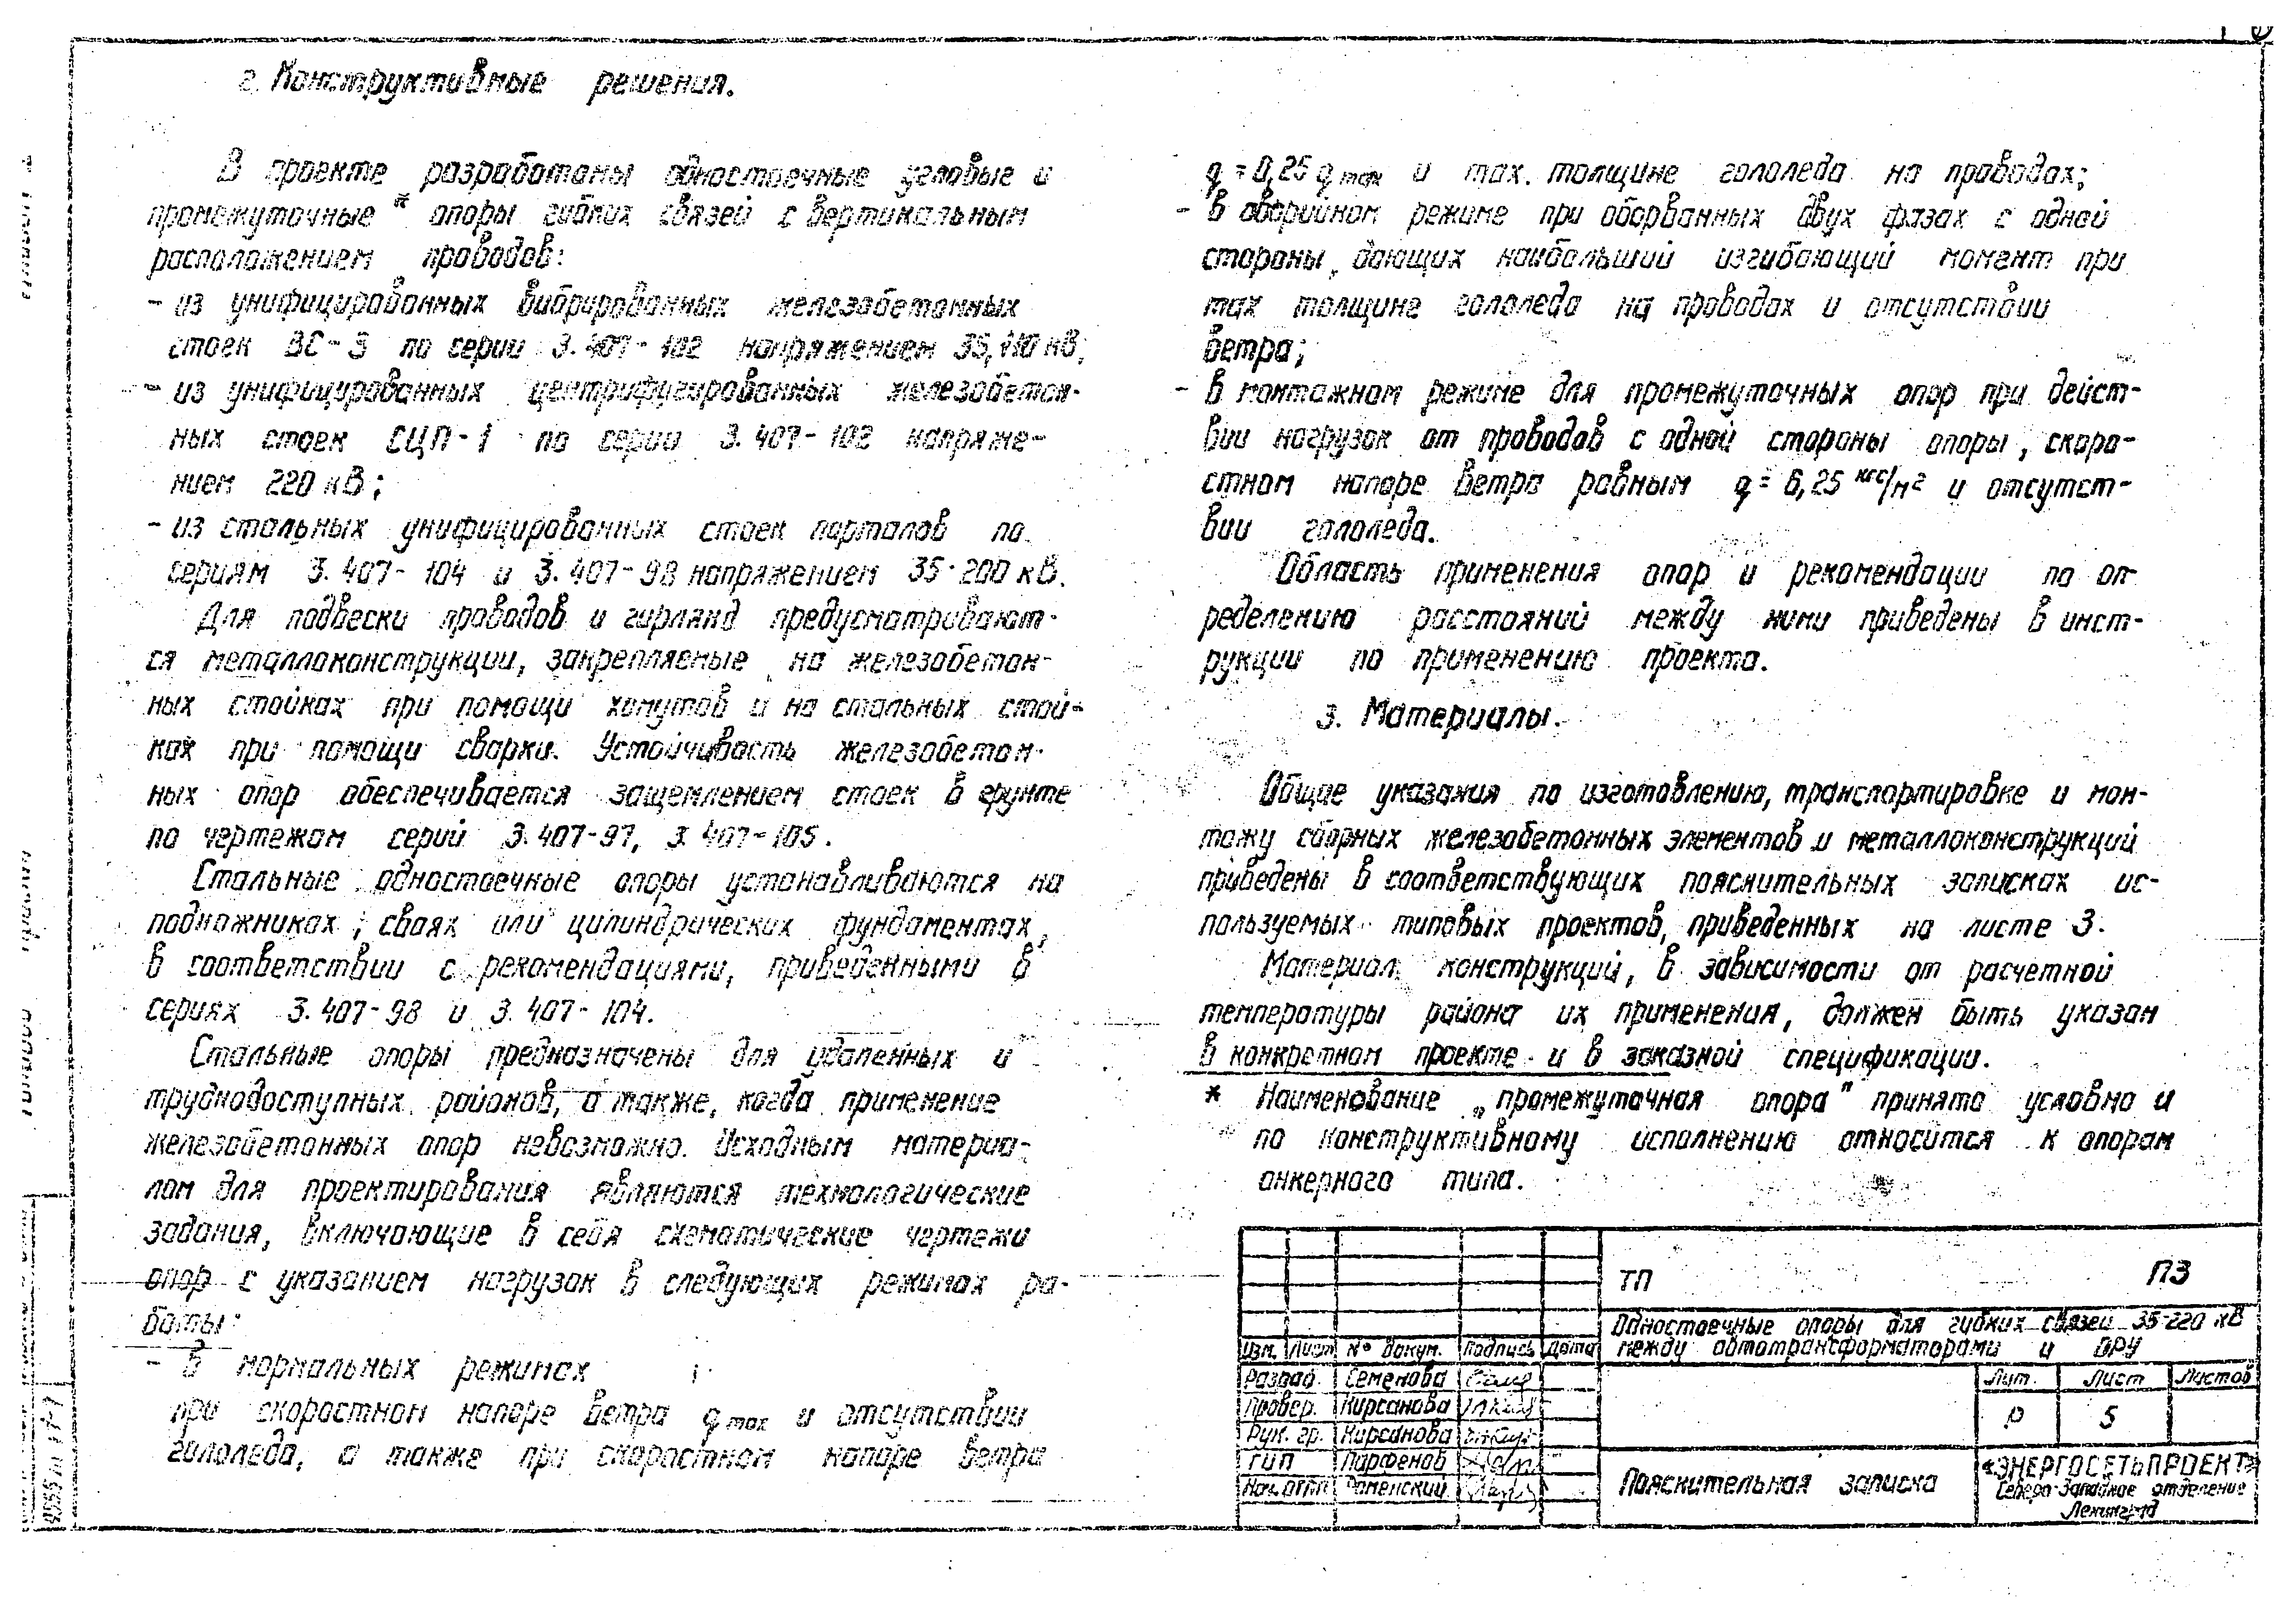 г. Конструктивные решения.
В проекте разработаны одностоечные угловые и
промежуточные * опоры гибких связей с вертикальным
расположением проводов:
- из унифицированных вибрированных железобетонных
стоек ВС-3 по серии 3.407-102 напряжением 35,110 кВ;
- из унифицированных центрифугированных железобетон-
ных стоек СЦП-1 по серии 3.407-102 напряже-
нием 220 кВ;
- из стальных унифицированных стоек порталов по
сериям 3.407-104 и 3.407-98 напряжением 35-200 кВ.
Для подвески проводов и гирлянд предусматривают-
ся металлоконструкции, закрепляемые на железобетон-
ных стойках при помощи хомутов и на стальных стой-
ках при помощи сварки. Устойчивость железобетон-
ных опор обеспечивается защемлением стоек в грунте
по чертежам серий 3.407-97, 3.407-105.
Стальные одностоечные опоры устанавливаются на
подножниках, сваях или цилиндрических фундаментах,
в соответствии с рекомендациями, приведенными в
сериях 3.407-98 и 3.407-104.
Стальные опоры предназначены для удаленных и
труднодоступных районов, а также, когда применение
железобетонных опор невозможно. Исходным материа-
лом для проектирования являются технологические
задания, включающие в себя схематические чертежи
опор с указанием нагрузок в следующих режимах ра-
боты:
- в нормальных режимах
при скоростном напоре ветра q max и отсутствии
гололеда, а также при скоростном напоре ветра
q = 0,25 q max и max. толщине гололеда на проводах;
- в аварийном режиме при оборванных двух фазах с одной
стороны, дающих наибольший изгибающий момент при
max толщине гололеда на проводах и отсутствии
ветра;
- в монтажном режиме для промежуточных опор при дейст-
вии нагрузок от проводов с одной стороны опоры, скоро-
стном напоре ветра равным q = 6,25 кгс/м² и отсутст-
вии гололеда.
Область применения опор и рекомендации по оп-
ределению расстояний между ними приведены в инст-
рукции по применению проекта.
3. Материалы.
Общие указания по изготовлению, транспортировке и мон-
тажу сборных железобетонных элементов и металлоконструкций
приведены в соответствующих пояснительных записках ис-
пользуемых типовых проектов, приведенных на листе 3.
Материал конструкций, в зависимости от расчетной
температуры района их применения, должен быть указан
в конкретном проекте и в заказной спецификации.
* Наименование „промежуточная опора" принято условно и
по конструктивному исполнению относится к опорам
анкерного типа.
ТП ПЗ
Одностоечные опоры для гибких связей 35-220 кВ
между автотрансформаторами и ОРУ
Изм. Лист № докум. Подпись Дата
Разраб. Семенова
Провер. Кирсанова
Рук. гр. Кирсанова
ГИП Парфенов
Нач. ОТП Роменский
Лит. Лист Листов
Р 5
Пояснительная записка
«ЭНЕРГОСЕТЬПРОЕКТ»
Северо-Западное отделение
Ленинград